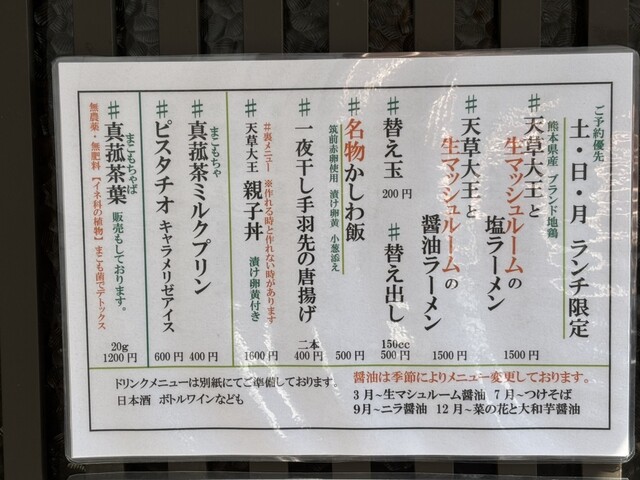 ご予約優先
土・日・月 ランチ限定
熊本県産 ブランド地鶏
#天草大王と
生マッシュルームの
塩ラーメン
1500円
#天草大王と
生マッシュルームの
醤油ラーメン
1500円
#替え玉
200円
#替え出し
150cc
500円
#名物かしわ飯
筑前赤卵使用 漬け卵黄 小葱添え
500円
#一夜干し手羽先の唐揚げ
二本
400円
#裏メニュー ※作れる時と作れない時があります
#天草大王 親子丼 漬け卵黄付き
1600円
まこもちゃ
#真菰茶ミルクプリン
400円
#ピスタチオ キャラメリゼアイス
600円
まこもちゃば
#真菰茶葉 販売もしております。
20g
1200円
無農薬・無肥料【イネ科の植物】まこも菌でデトックス
醤油は季節によりメニュー変更しております。
3月~生マシュルーム醤油 7月~つけそば
9月~ニラ醤油 12月~菜の花と大和芋醤油
ドリンクメニューは別紙にてご準備しております。
日本酒 ボトルワインなども